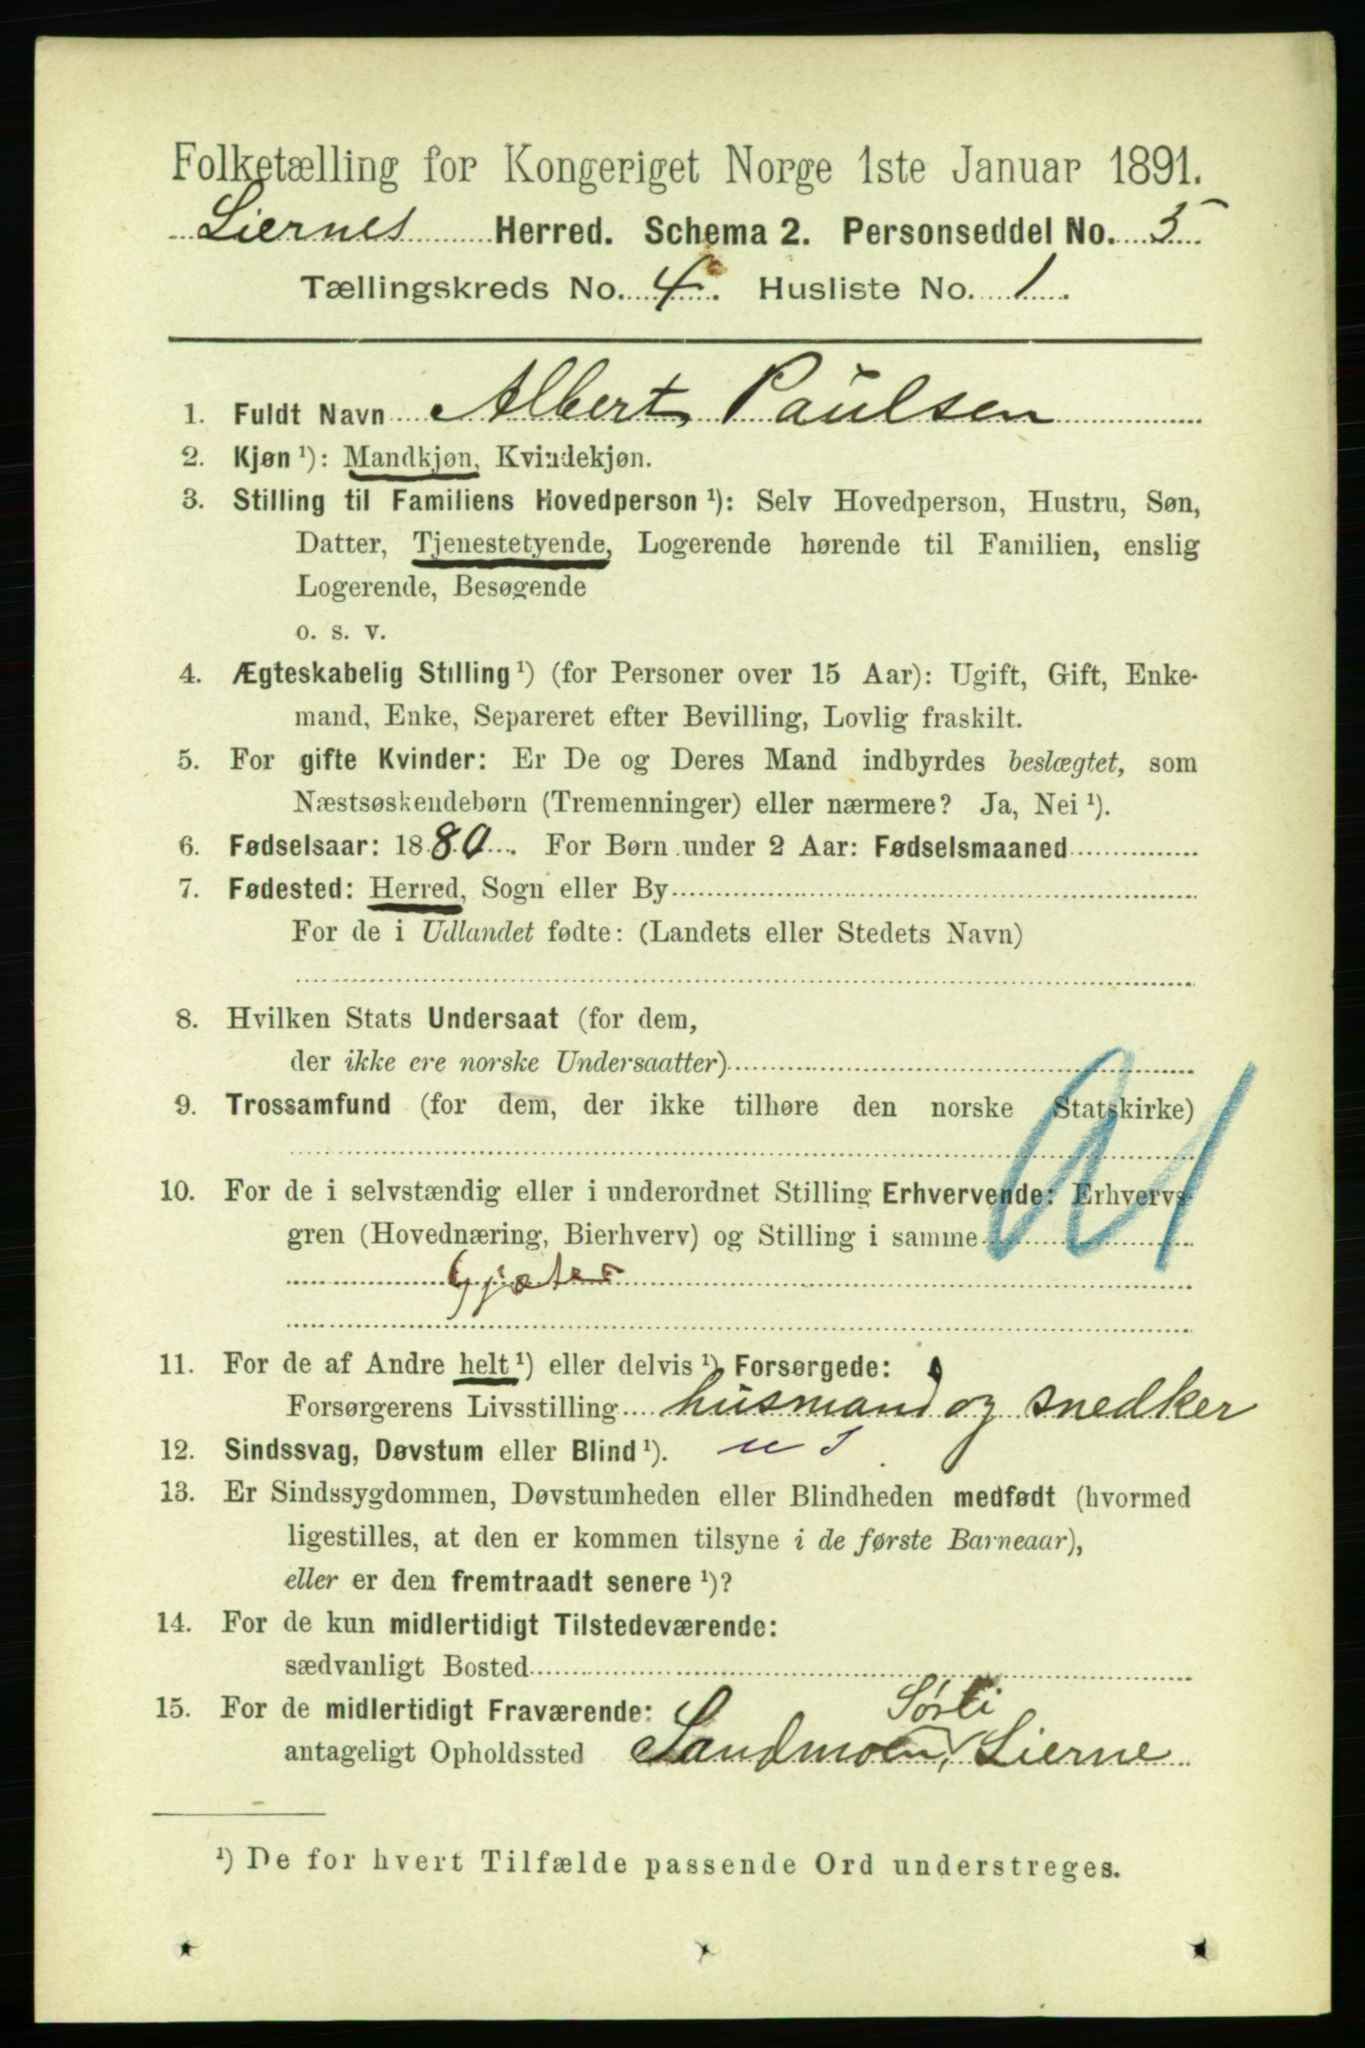 Folketælling for Kongeriget Norge 1ste Januar 1891.
Liernes Herred. Schema 2. Personseddel No. 5
Tællingskreds No. 4. Husliste No. 1.
1. Fuldt Navn Albert Paulsen
2. Kjøn ¹): Mandkjøn, Kvindekjøn.
3. Stilling til Familiens Hovedperson ¹): Selv Hovedperson, Hustru, Søn,
Datter, Tjenestetyende, Logerende hørende til Familien, enslig
Logerende, Besøgende
o. s. v.
4. Ægteskabelig Stilling ¹) (for Personer over 15 Aar): Ugift, Gift, Enke-
mand, Enke, Separeret efter Bevilling, Lovlig fraskilt.
5. For gifte Kvinder: Er De og Deres Mand indbyrdes beslægtet, som
Næstsøskendebørn (Tremenninger) eller nærmere? Ja, Nei ¹).
6. Fødselsaar: 1880. For Børn under 2 Aar: Fødselsmaaned
7. Fødested: Herred, Sogn eller By
For de i Udlandet fødte: (Landets eller Stedets Navn)
8. Hvilken Stats Undersaat (for dem,
der ikke ere norske Undersaatter)
9. Trossamfund (for dem, der ikke tilhøre den norske Statskirke)
10. For de i selvstændig eller i underordnet Stilling Erhvervende: Erhvervs-
gren (Hovednæring, Bierhverv) og Stilling i samme
Gjæter
11. For de af Andre helt ¹) eller delvis ¹) Forsørgede:
Forsørgerens Livsstilling husmand og snedker
12. Sindssvag, Døvstum eller Blind ¹).
13. Er Sindssygdommen, Døvstumheden eller Blindheden medfødt (hvormed
ligestilles, at den er kommen tilsyne i de første Barneaar),
eller er den fremtraadt senere ¹)?
14. For de kun midlertidigt Tilstedeværende:
sædvanligt Bosted
15. For de midlertidigt Fraværende: Sørli
antageligt Opholdssted Sandmoen, Lierne
¹) De for hvert Tilfælde passende Ord understreges.